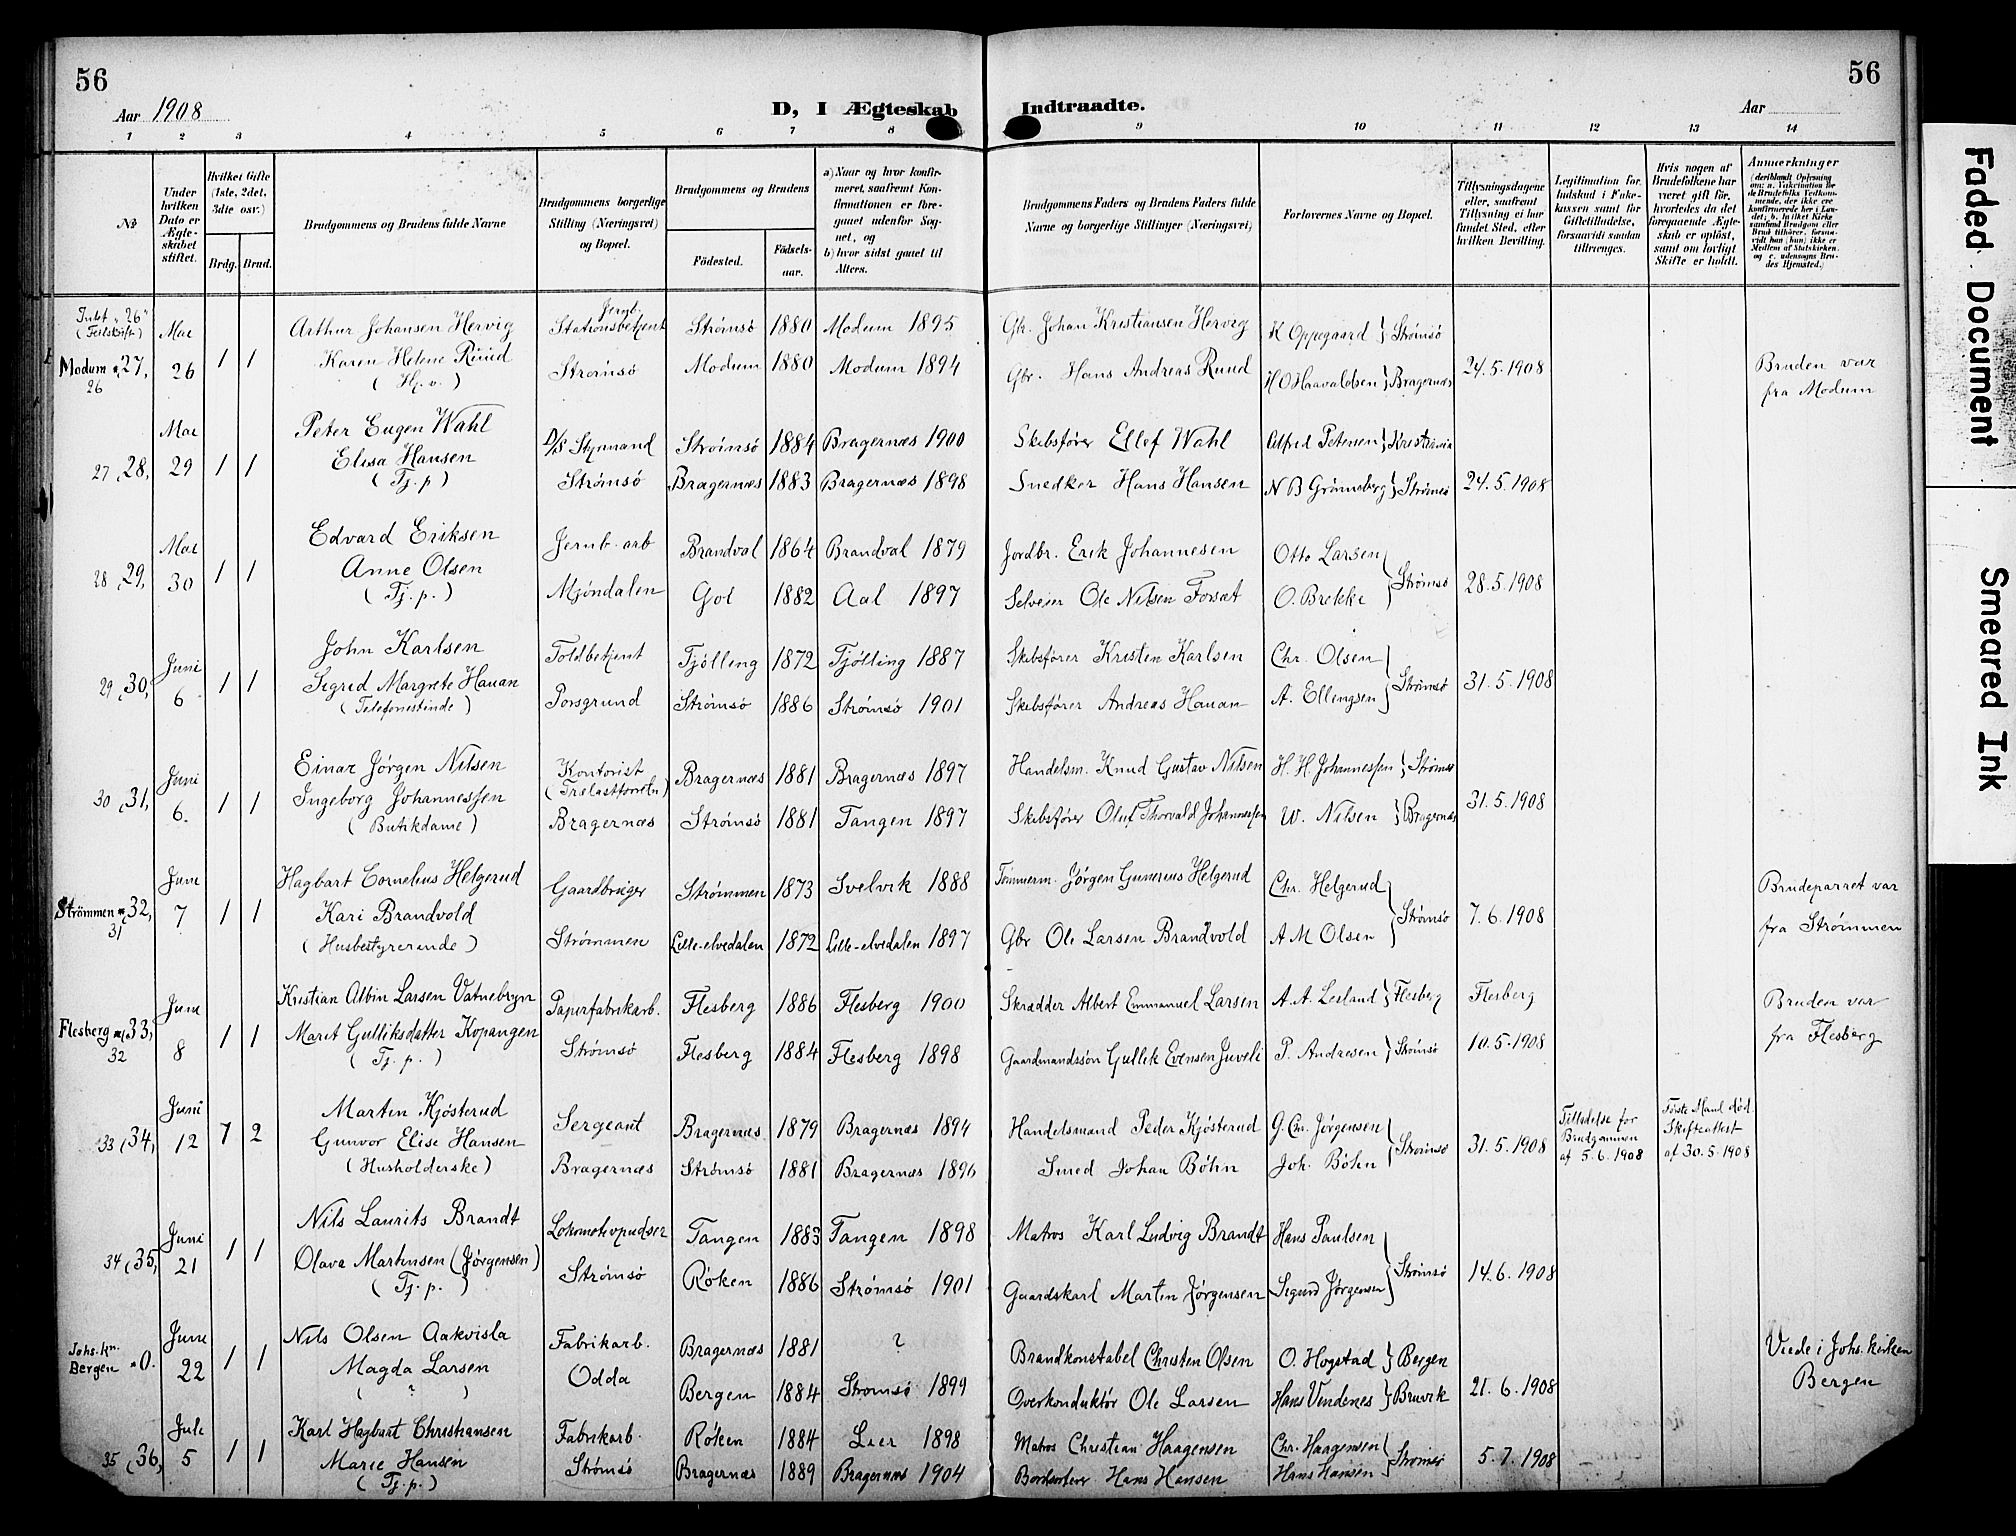 56
56
Aar 1908
D, I Ægteskab Indtraadte.
Aar
1 2 3 4 5 6 7 8 9 10 11 12 13 14
№
Under hvilken Dato er Ægteskabet stiftet.
Hvilket Gifte (1ste, 2det, 3dte osv.)
Brdg. Brud.
Brudgommens og Brudens fulde Navne
Brudgommens borgerlige Stilling (Næringsvei) og Bopæl.
Brudgommens og Brudens
Födested. Födsels-aar.
a) Naar og hvor konfirmeret, saafremt Konfirmationen er foregaaet udenfor Sognet, og
b) hvor sidst gaaet til Alters.
Brudgommens Faders og Brudens Faders fulde Navne og borgerlige Stillinger (Næringsvei)
Forlovernes Navne og Bopæl.
Tillysningsdagene eller, saafremt Tillysning ei har fundet Sted, efter hvilken Bevilling.
Legitimation for Indskud i Enkekassen samt for Giftetilladelse, forsaavidt saadan tiltrænges.
Hvis nogen af Brudefolkene har været gift för, hvorledes da det foregaaende Ægteskab er oplöst, samt om lovligt Skifte er holdt.
Anmerkninger (deriblandt Oplysning om: a. Vakcination for de Brudefolks Vedkommende, der ikke ere konfirmerede her i Landet; b. hvilket Kirkesamfund Brudgom eller Brud tilhörer, forsaavidt han (hun) ikke er Medlem af Statskirken, og c. udensogns Brudes Hjemsted.)
"26"
(Feilskrift)
Modum 27, 26
Mai 26
1 1
Arthur Johansen Hervig
Karen Helene Ruud
Jernb.
Stationsbetjent
Strømsö
Strømsö 1880 Modum 1895
Modum 1880 Modum 1894
Gbr. Johan Kristiansen Hervig
Gbr. Hans Andreas Ruud
K Oppegaard } Strømsö
H O Haavaldsen } Bragernæs
24.5.1908
Bruden var
fra Modum
27 (28,
Mai 29
1 1
Peter Eugen Wahl
Elisa Hansen
(Tj. p)
D/S Styrmand
Strømsö
Strømsö 1884 Bragernæs 1900
Bragernæs 1883 Bragernæs 1898
Skibsfører Ellef Wahl
Snedker Hans Hansen
Alfred Petersen } Kristiania
N B Grönneberg } Strømsö
24.5.1908
28 (29,
Mai 30
1 1
Edvard Eriksen
Anne Olsen
(Tj. p.)
Jernb. arb
Mjöndalen
Brandval 1864 Brandval 1879
Gol 1882 Aal 1897
Jordbr. Erik Johannesen
Selveier Ole Nilsen Forsæt
Otto Larsen
O. Brekke
} Strømsö
28.5.1908
29 (30,
Juni 6
1 1
John Karlsen
Sigrid Margrete Hauan
(Telefonistinde)
Toldbetjent
Porsgrund
Tjölling 1872 Tjölling 1887
Strømsö 1886 Strømsö 1901
Skibsfører Kristen Karlsen
Skibsfører Andreas Hauan
Chr. Olsen
A. Ellingsen
} Strømsö
31.5.1908
30 (31,
Juni 6.
1 1
Einar Jörgen Nilsen
Ingeborg Johannessen
(Butikdame)
Kontorist
(Trelastforretn)
Bragernæs
Bragernæs 1881 Bragernæs 1897
Strømsö 1881 Tangen 1897
Handelsm. Knud Gustav Nilsen
Skibsfører Oluf Thorvald Johannessen
H. H. Johannessen } Strømsö
W. Nilsen } Bragernæs
31.5.1908
Strömmen 32, 31
Juni 7
1 1
Hagbart Cornelius Helgerud
Kari Brandvold
(Husbestyrerinde)
Gaardbruger
Strömmen
Strömmen 1873 Svelvik 1888
Lille-elvedalen 1872 Lille-elvedalen 1897
Tømmerm. Jörgen Gunerius Helgerud
Gbr Ole Larsen Brandvold
Chr. Helgerud
A M Olsen
} Strømsö
7.6.1908
Brudeparret var
fra Strømmen
Flesberg (33, 32
Juni 8
1 1
Kristian Albin Larsen Vatnebryn
Marit Gulliksdatter Kopangen
(Tj. p.)
Papirfabrikarb.
Strømsö
Flesberg 1886 Flesberg 1900
Flesberg 1884 Flesberg 1898
Skrædder Albert Emmanuel Larsen
Gaardmandssön Gullik Evensen Juveli
A. A. Lesland } Flesberg
P. Andresen } Strømsö
Flesberg
10.5.1908
Bruden var
fra Flesberg
33 (34,
Juni 12
1 2
Martin Kjösterud
Gunvor Elise Hansen
(Husholderske)
Sergeant
Bragernæs
Bragernæs 1879 Bragernæs 1894
Strømsö 1881 Bragernæs 1896
Handelsmand Peder Kjösterud
Smed Johan Böhn
G. Chr. Jörgensen
Joh. Böhn
} Strømsö
31.5.1908
Tilladelse for
Brudgommen
af 5.6.1908
Første Mand död.
Skifteattest
af 30.5.1908
34 (35,
Juni 21
1 1
Nils Laurits Brandt
Olava Martinsen (Jörgensen)
(Tj. p.)
Lokomotivpudser
Strømsö
Tangen 1883 Tangen 1898
Röken 1886 Strømsö 1901
Matros Karl Ludvig Brandt
Gaardskarl Martin Jörgensen
Hans Paulsen
Sigurd Jörgensen
} Strømsö
14.6.1908
Johs.kn.
Bergen 0.
Juni 22
1 1
Nils Olsen Aakvisla
Magda Larsen
( ? )
Fabrikarb.
Odda
Bragernæs 1881 ?
Bergen 1884 Strømsö 1899
Brandkonstabel Christen Olsen
Overkonduktör Ole Larsen
O. Hogstad } Bergen
Hans Vindenes } Bruvik
21.6.1908
Viede i Johs. kirken
Bergen
35 (36,
Juli 5
1 1
Karl Hagbart Christiansen
Marie Hansen
(Tj. p.)
Fabrikarb.
Strømsö
Röken 1884 Lier 1898
Bragernæs 1889 Bragernæs 1904
Matros Christian Haagensen
Hans Hansen
Chr. Haagensen
Hans Hansen
} Strømsö
5.7.1908
Faded Document
Smeared Ink